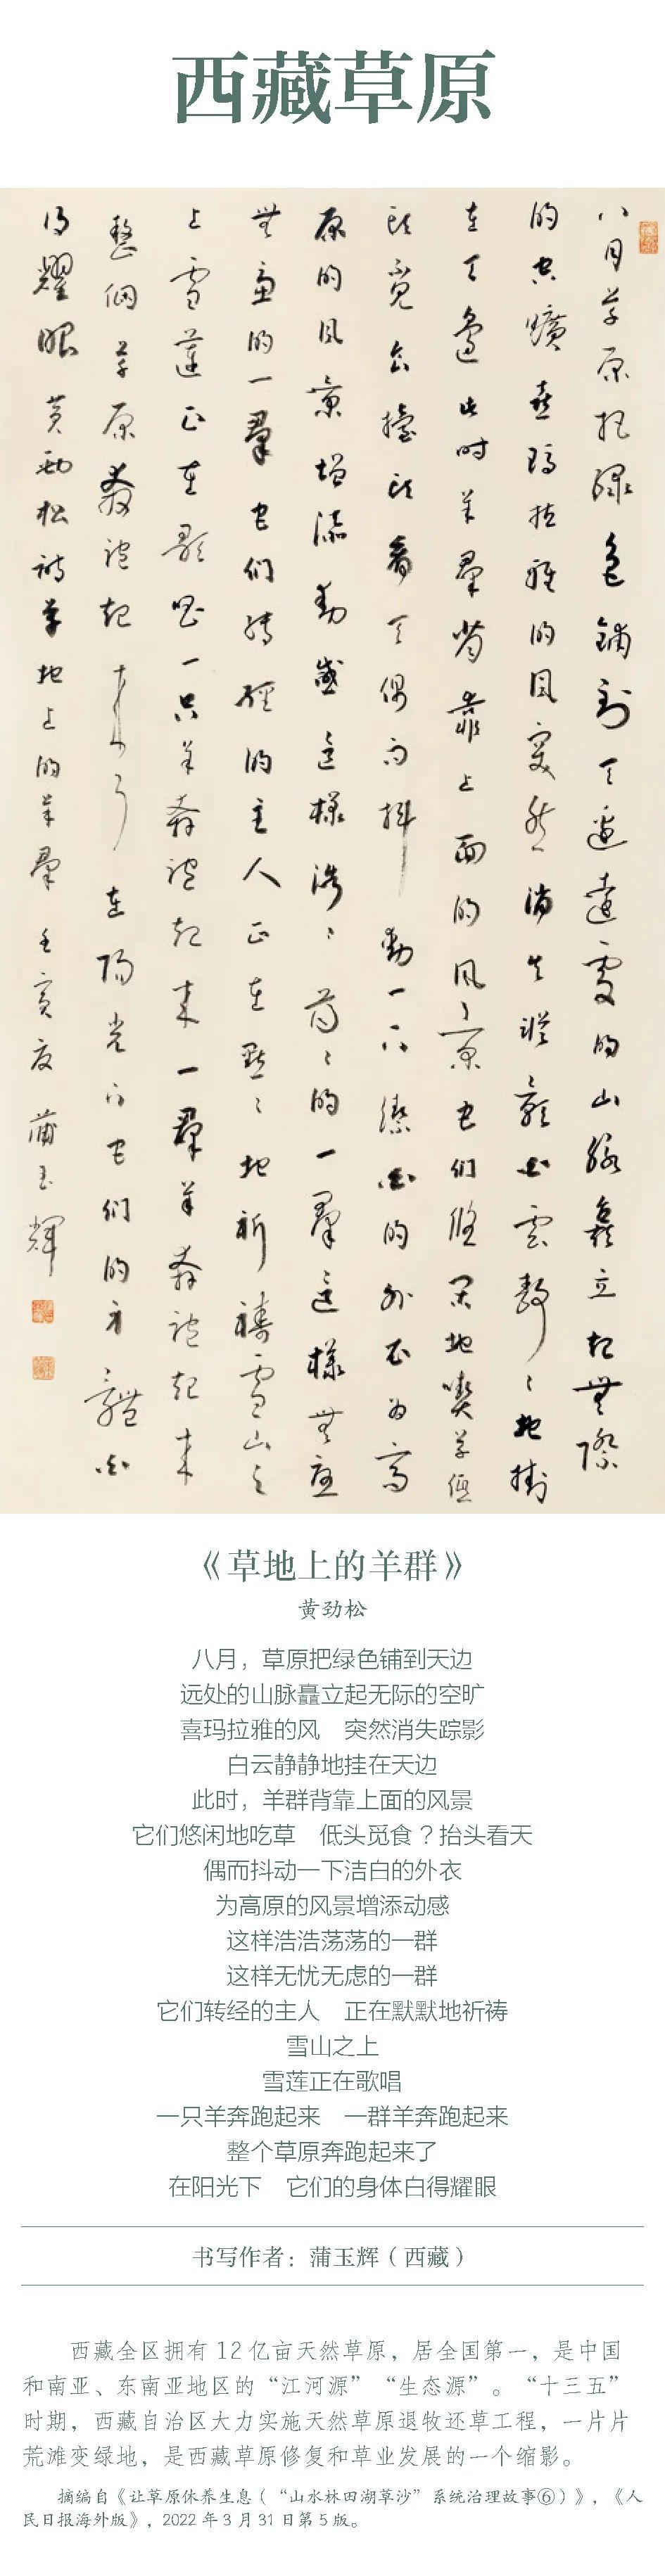 西藏草原
八月草原把緑色鋪到天邊遠處的山脉矗立起無際
的空曠喜瑪拉雅的風突然消失踪影白雲靜々地掛
在天邊此時羊羣背靠上面的風景它們悠閑地喫草低
頭覓食擡頭看天偶而抖動一下潔白的外衣為高
原的風景增添動感這樣浩々蕩々的一羣這樣無憂
無慮的一羣它們轉經的主人正在默々地祈禱雪山之
上雪蓮正在歌唱一只羊奔跑起来一羣羊奔跑起来
整個草原奔跑起来了在陽光下它們的身體白
得耀眼黄勁松詩草地上的羊羣 壬寅夏 蒲玉輝
《草地上的羊群》
黄劲松
八月，草原把绿色铺到天边
远处的山脉矗立起无际的空旷
喜玛拉雅的风　突然消失踪影
白云静静地挂在天边
此时，羊群背靠上面的风景
它们悠闲地吃草　低头觅食？抬头看天
偶而抖动一下洁白的外衣
为高原的风景增添动感
这样浩浩荡荡的一群
这样无忧无虑的一群
它们转经的主人　正在默默地祈祷
雪山之上
雪莲正在歌唱
一只羊奔跑起来　一群羊奔跑起来
整个草原奔跑起来了
在阳光下　它们的身体白得耀眼
书写作者：蒲玉辉（西藏）
西藏全区拥有12亿亩天然草原，居全国第一，是中国
和南亚、东南亚地区的“江河源”“生态源”。“十三五”
时期，西藏自治区大力实施天然草原退牧还草工程，一片片
荒滩变绿地，是西藏草原修复和草业发展的一个缩影。
摘编自《让草原休养生息（“山水林田湖草沙”系统治理故事⑥）》，《人
民日报海外版》，2022年3月31日第5版。